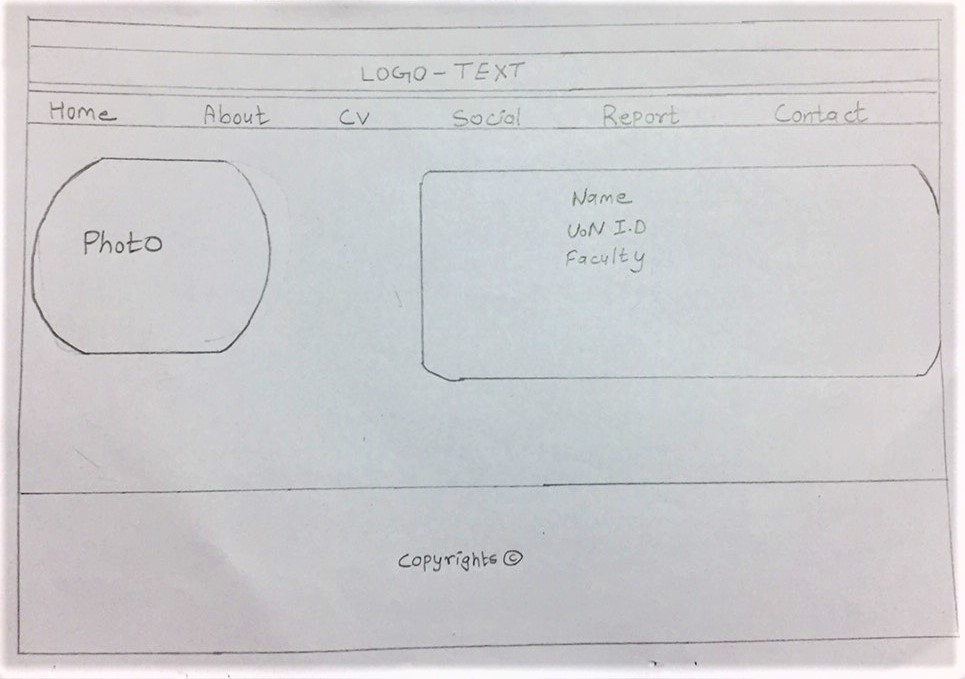 LOGO-TEXT
Home About CV Social Report Contact
Photo
Name
UoN I.D
Faculty
Copyrights ©